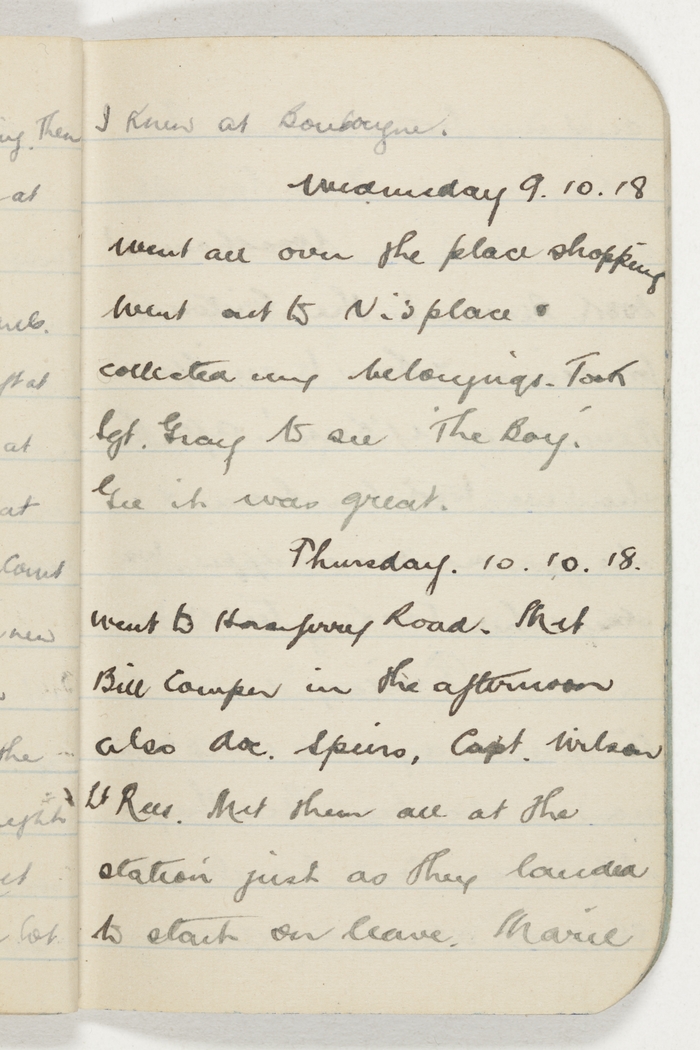 I knew at Boulogne.
Wednesday 9. 10. 18
went all over the place shopping
Went out to Vi's place &
collected my belongings. Took
Sgt. Gray to see 'The Boy'.
Gee it was great.
Thursday. 10. 10. 18.
went to Road. Met
Bill Comper in the afternoon
also Doc. Speirs, Capt. Wilson
Lt Rees. Met them all at the
station just as they landed
to start on leave. Marie
ing. Then
at
at
at
Court
new
the